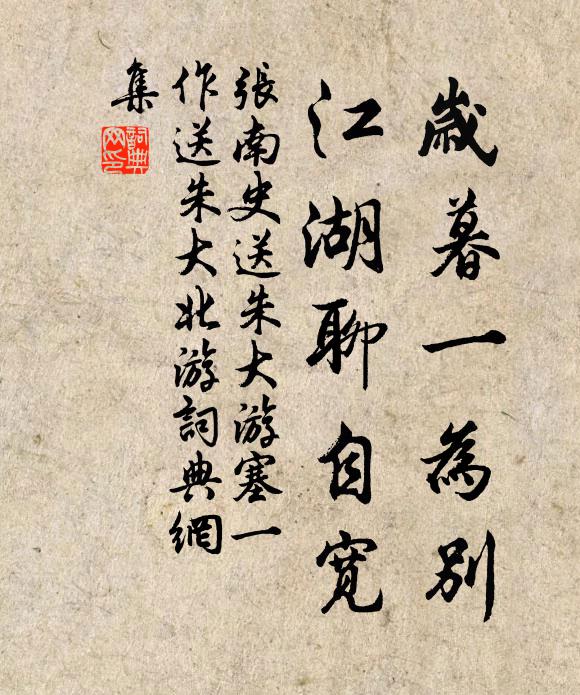 歲暮一為別
江湖聊自寬
張南史送朱大游塞一
作送朱大北游詞典網
集
詞典
网印